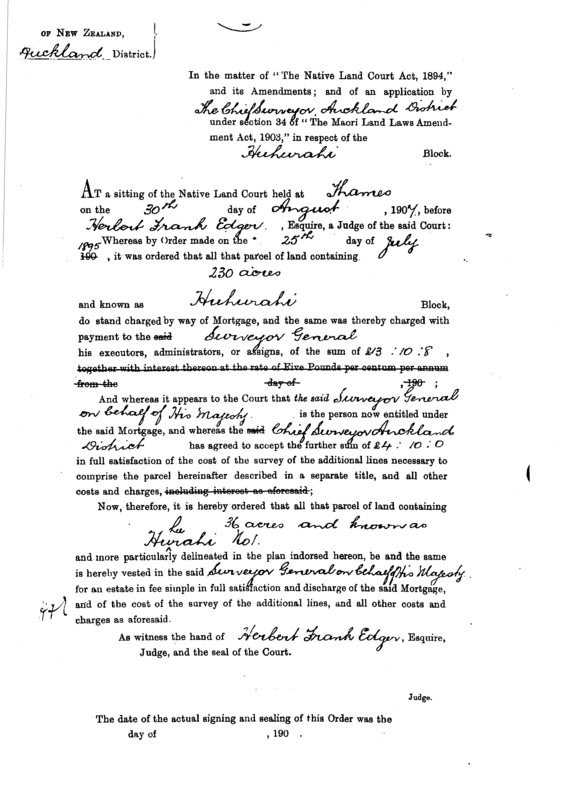 OF NEW ZEALAND,
Auckland District.
In the matter of "The Native Land Court Act, 1894,"
and its Amendments; and of an application by
The Chief Surveyor, Auckland District
under section 34 of "The Maori Land Laws Amend-
ment Act, 1903," in respect of the
Huhurahi Block.
AT a sitting of the Native Land Court held at Thames
on the 30th day of August , 1904, before
Herbert Frank Edger. , Esquire, a Judge of the said Court:
Whereas by Order made on the * 25th day of July
1895
190 , it was ordered that all that parcel of land containing
230 acres
and known as Huhurahi Block,
do stand charged by way of Mortgage, and the same was thereby charged with
payment to the said Surveyor General
his executors, administrators, or assigns, of the sum of £13 : 10 : 8 ,
together with interest thereon at the rate of Five Pounds per centum per annum
from the day of , 190 ;
And whereas it appears to the Court that the said Surveyor General
on behalf of His Majesty. is the person now entitled under
the said Mortgage, and whereas the said Chief Surveyor Auckland
District has agreed to accept the further sum of £4 : 10 : 0
in full satisfaction of the cost of the survey of the additional lines necessary to
comprise the parcel hereinafter described in a separate title, and all other
costs and charges, including interest as aforesaid;
Now, therefore, it is hereby ordered that all that parcel of land containing
36 acres and known as
Hurahi No 1.
and more particularly delineated in the plan indorsed hereon, be and the same
is hereby vested in the said Surveyor General on behalf of His Majesty.
for an estate in fee simple in full satisfaction and discharge of the said Mortgage,
and of the cost of the survey of the additional lines, and all other costs and
charges as aforesaid.
As witness the hand of Herbert Frank Edger, Esquire,
Judge, and the seal of the Court.
Judge.
The date of the actual signing and sealing of this Order was the
day of , 190 .